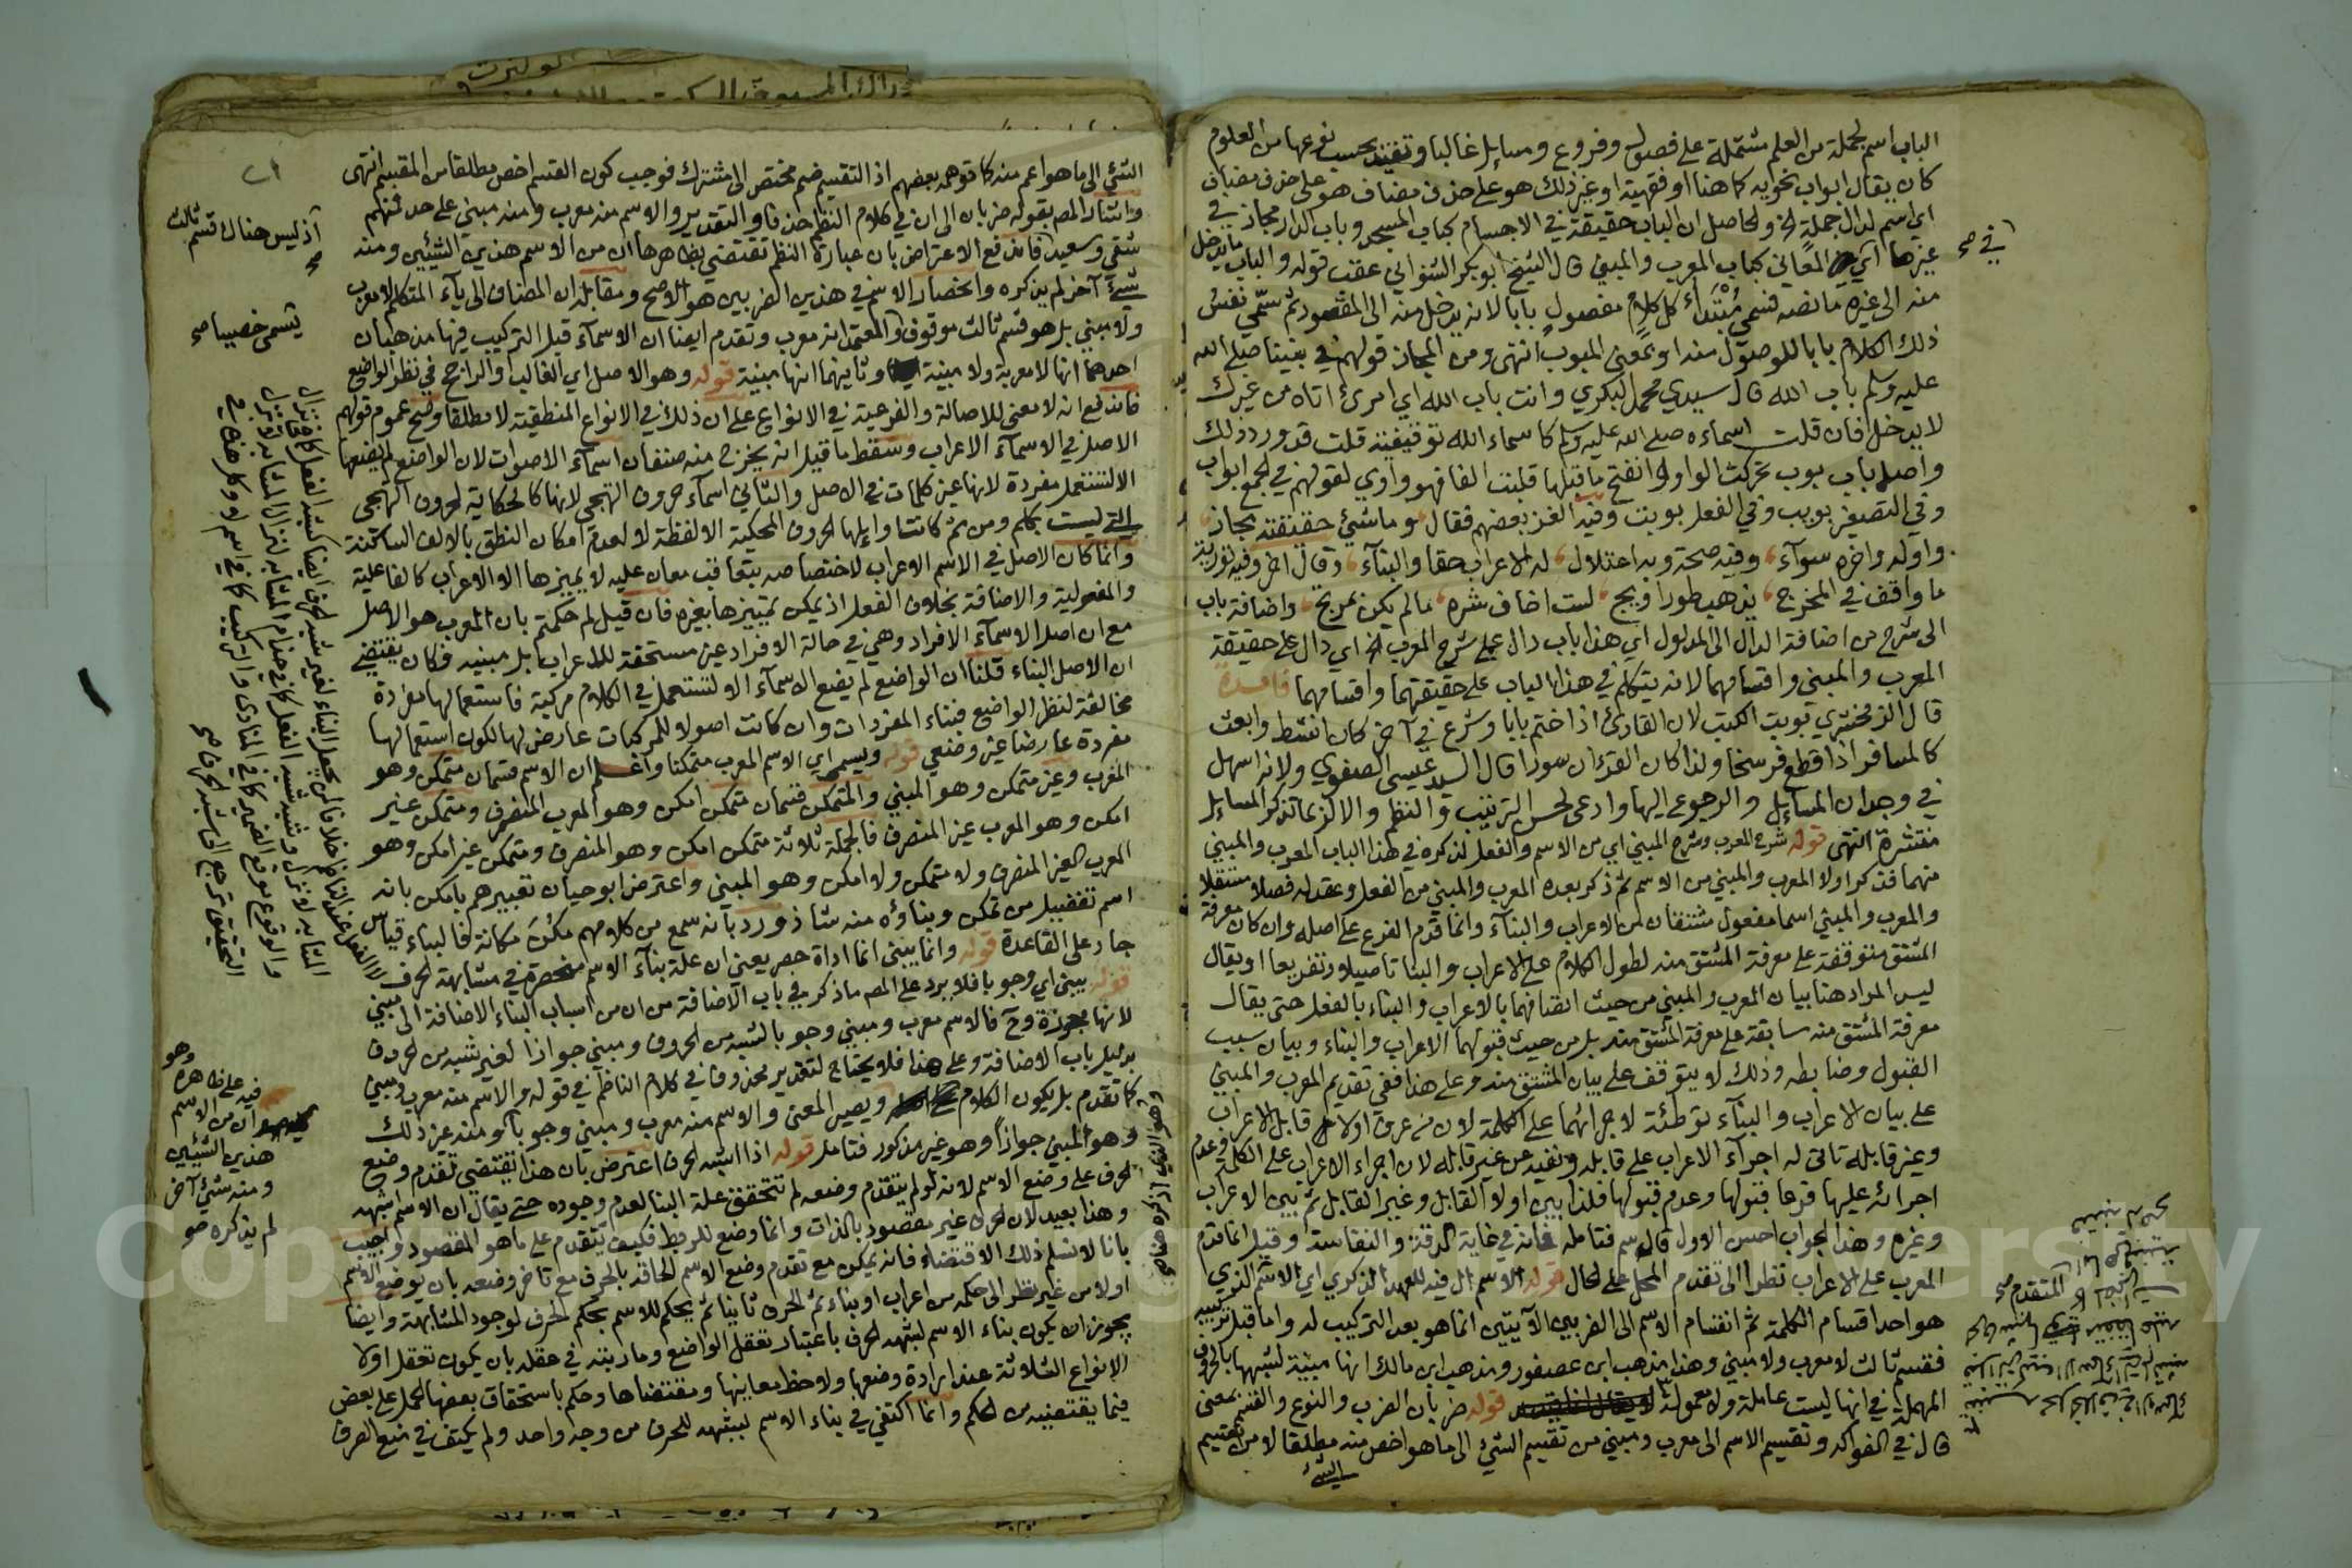 الباب اسم لجملة من العلم مشتملة على فصول وفروع ومسايل غالبا وتفنيد بحسب نوعها من العلوم
كان يقال ابواب نحويه كما هنا او فقهية او غير ذلك هو على حذف مضاف
اي اسم لدال جملة الخ والحاصل ان الباب حقيقة في الاجسام كباب المسجد وباب الدار مجاز في
غيرها اي المعاني كباب المعرب والمبني قال الشيخ ابو بكر الشنواني عقب قوله والباب ما يدخل
منه الى غيره ما نصه فسمي مبتداء كل كلام مفصول بابا لانه يدخل منه الى المقصود ثم سمي نفس
ذلك الكلام بابا للوصول منه او بمعنى المبوب انتهى ومن المجاز قولهم في نبينا صلى الله
عليه وسلم باب الله قال سيدي محمد البكري وانت باب الله اي امرئ اتاه من غيرك
لا يدخل فان قلت اسماءه صلى الله عليه وسلم كاسماء الله توقيفية قلت قد ورد ذلك
واصل باب بوب تحركت الواو وانفتح ما قبلها قلبت الفا فهو واوي لقولهم في الجمع ابواب
وفي التصغير بويب وفي الفعل بوبت وفيه الغز بعضهم فقال وما شيئ حقيقته مجاز
واوله واخره سواء وفيه صحة وبه اعتلال له الاعراب حقا والبناء وقال اخر وفيه تورية
ما واقف في المخرج يذهب طورا ويج لست اخاف شره ما لم يكن بمرتج واضافة باب
الى شرح من اضافة الدال الى المدلول اي هذا باب دال على شرح المعرب الخ اي دال على حقيقة
المعرب والمبني واقسامهما لانه يتكلم في هذا الباب على حقيقتهما واقسامهما فائدة
قال الزمخشري بوبت الكتب لان القارئ اذا ختم بابا وشرع في آخر كان انشط وابعث
كالمسافر اذا قطع فرسخا ولذا كان القرءان سورا قال السيد عيسى الصفوي ولانه اسهل
في وجدان المسايل والرجوع اليها وادعى لحسن الترتيب والنظم والا لربما تذكر المسايل
منتشرة انتهى قوله شرح المعرب وشرح المبني اي من الاسم والفعل لذكره في هذا الباب المعرب والمبني
منهما فذكر اولا المعرب والمبني من الاسم ثم ذكر بعده المعرب والمبني من الفعل وعقد له فصلا مستقلا
والمعرب والمبني اسما مفعول مشتقان من الاعراب والبناء وانما قدم الفرع على اصله وان كان معرفة
المشتق متوقفة على معرفة المشتق منه لطول الكلام على الاعراب والبنا تاصيلا وتفريعا او يقال
ليس المراد هنا بيان المعرب والمبني من حيث اتصافهما بالاعراب والبناء بالفعل حتى يقال
معرفة المشتق منه سابقة على معرفة المشتق منه بل من حيث قبولهما الاعراب والبناء وبيان سبب
القبول وضابطه وذلك لا يتوقف على بيان المشتق منه وعلى هذا ففي تقديم المعرب والمبني
على بيان الاعراب والبناء توطئة لاجرائهما على الكلمة لان من عرف اولا قابل الاعراب
وغير قابله تاتى له اجراء الاعراب على قابله ونفيه عن غير قابله لان اجراء الاعراب على الكلمة وعدم
اجرائه عليها فرعا قبولها وعدم قبولها فلذا بين اولا القابل وغير القابل ثم بين الاعراب
وغيره وهذا الجواب احسن الاول قاله سم فتامله فانه في غاية الدقة والنفاسة وقيل انما قدم
المعرب على الاعراب نظرا الى تقدم المحل على الحال قوله الاسم ال فيه للعهد الذكري اي الاسم الذي
هو احد اقسام الكلمة ثم انقسام الاسم الى الضربين الآتيين انما هو بعد التركيب له واما قبل تركيبه
فقسم ثالث لا معرب ولا مبني وهذا مذهب ابن عصفور ومذهب ابن مالك انها مبنية لشبهها بالحروف
المهملة في انها ليست عاملة ولا معمولة قوله ضربان الضرب والنوع والقسم بمعنى
قال في الفواكه وتقسيم الاسم الى معرب ومبني من تقسيم الشيئ الى ما هو اخص منه مطلقا لا من تقسيم
الشيئ
في صح
المتقدم صح
الشيئ الى ما هو اعم منه كما توهمه بعضهم اذ التقسيم ضم مختص الى مشترك فوجب كون القسم اخص مطلقا من المقسم انتهى
واشار المص بقوله ضربان الى ان في كلام النظم حذفا والتقدير والاسم منه معرب ومنه مبني على حد فمنهم
شقي وسعيد فاندفع الاعتراض بان عبارة النظم تقتضي بظاهرها ان من الاسم هذين الشيئين ومنه
شيئ آخر لم يذكره وانحصار الاسم في هذين الضربين هو الاصح ومقابله ان المضاف الى ياء المتكلم لا معرب
ولا مبني بل هو قسم ثالث موقوف والمعتمد انه معرب وتقدم ايضا ان الاسماء قبل التركيب فيها مذهبان
احدهما انها لا معربة ولا مبنية وثانيهما انها مبنية قوله وهو الاصل اي الغالب او الراجح في نظر الواضع
فاندفع انه لا معنى للاصالة والفرعية في الانواع على ان ذلك في الانواع المنطقية لا مطلقا وصح عموم قولهم
الاصل في الاسماء الاعراب وسقط ما قيل انه يخرج منه صنفان اسماء الاصوات لان الواضع لم يضعها
الا لتستعمل مفردة لانها غير كلمات في الاصل والثاني اسماء حروف التهجي لانها كالحكاية لحروف التهجي
التي ليست بكلم ومن ثم كانت اوايلها الحروف المحكية الا لفظة لا لعدم امكان النطق بالالف الساكنة
وانما كان الاصل في الاسم الاعراب لاختصاصه بتعاقب معان عليه لا يميزها الا الاعراب كالفاعلية
والمفعولية والاضافة بخلاف الفعل اذ يمكن تمييزها بغيره فان قيل لم حكمتم بان المعرب هو الاصل
مع ان اصل الاسماء الافراد وهي في حالة الافراد غير مستحقة للاعراب بل مبنيه فكان يقتضي
ان الاصل البناء قلنا ان الواضع لم يضع الاسماء الا لتستعمل في الكلام مركبة فاستعمالها مفردة
مخالفة لنظر الواضع فبناء المفردات وان كانت اصولا للمركبات عارض لها لكون استعمالها
مفردة عارضا غير وضعي قوله ويسمى اي الاسم المعرب متمكنا واعلم ان الاسم قسمان متمكن وهو
المعرب وغير متمكن وهو المبني والمتمكن قسمان متمكن امكن وهو المعرب المنصرف ومتمكن غير
امكن وهو المعرب غير المنصرف فالجملة ثلاثة متمكن امكن وهو المنصرف ومتمكن غير امكن وهو
المعرب الغير المنصرف ولا متمكن ولا امكن وهو المبني واعترض ابو حيان تعبيرهم بامكن بانه
اسم تفضيل من تمكن وبناؤه منه شاذ ورد بانه سمع من كلامهم مكن مكانة فالبناء قياس
جار على القاعدة قوله وانما يبنى انما اداة حصر يعني ان علة بناء الاسم منحصرة في مشابهة الحرف
قوله يبنى اي وجوبا فلا يرد على المص ما ذكر في باب الاضافة من ان من اسباب البناء الاضافة الى مبني
لانها مجوزة وح فالاسم معرب ومبني وجوبا لشبه من الحروف ومبني جوازا لغير شبه من الحروف
بدليل باب الاضافة وعلى هذا فلا يحتاج لتقدير محذوف في كلام الناظم في قوله والاسم منه معرب ومبني
كما تقدم بل يكون الكلام ويصير المعنى والاسم منه معرب ومبني وجوبا ومنه غير ذلك
وهو المبني جوازا وهو غير مذكور فتامل قوله اذا اشبه الحرف اعترض بان هذا يقتضي تقدم وضع
الحرف على وضع الاسم لانه لو لم يتقدم وضعه لم تتحقق علة البنا لعدم وجوده حتى يقال ان الاسم اشبهه
وهذا بعيد لان الحرف غير مقصود بالذات وانما وضع للربط فكيف يتقدم على ما هو المقصود واجيب
بانا لا نسلم ذلك الاقتضاء فانه يمكن مع تقدم وضع الاسم الحاقه بالحرف مع تاخر وضعه بان يوضع الاسم
اولا من غير نظر الى حكمه من اعراب او بناء ثم الحرف ثانيا ثم يحكم للاسم بحكم الحرف لوجود المشابهة وايضا
يجوز ان يكون بناء الاسم لشبهه الحرف باعتبار تعقل الواضع ومادبته في عقله بان يكون تعقل اولا
الانواع الثلاثة عند ارادة وضعها ولاحظ معانيها ومقتضاها وحكم باستحقاق بعضها الحمل على بعض
فيما يقتضيه من الحكم وانما اكتفي في بناء الاسم بشبهه للحرف من وجه واحد ولم يكتف في منع الصرف
اذ ليس هناك قسم ثالث
صح
يسمى خصيا صح
وهو
فيه على ظاهره
ان من الاسم
هذين الشيئين
ومنه شيئ آخر
لم يذكره هو